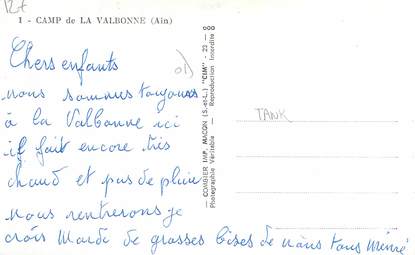 12+
1 - CAMP de LA VALBONNE (Ain)
Chers enfants
nous sommes toujours
à la Valbonne ici
il fait encore très
chaud et pas de pluie
nous rentrerons je
crois Mardi de grosses bises de nous tous Mimé
— COMBIER IMP. MACON (S.-et-L.) "CIM" - 23 - 9
Photographie Véritable — Reproduction Interdite
TANK